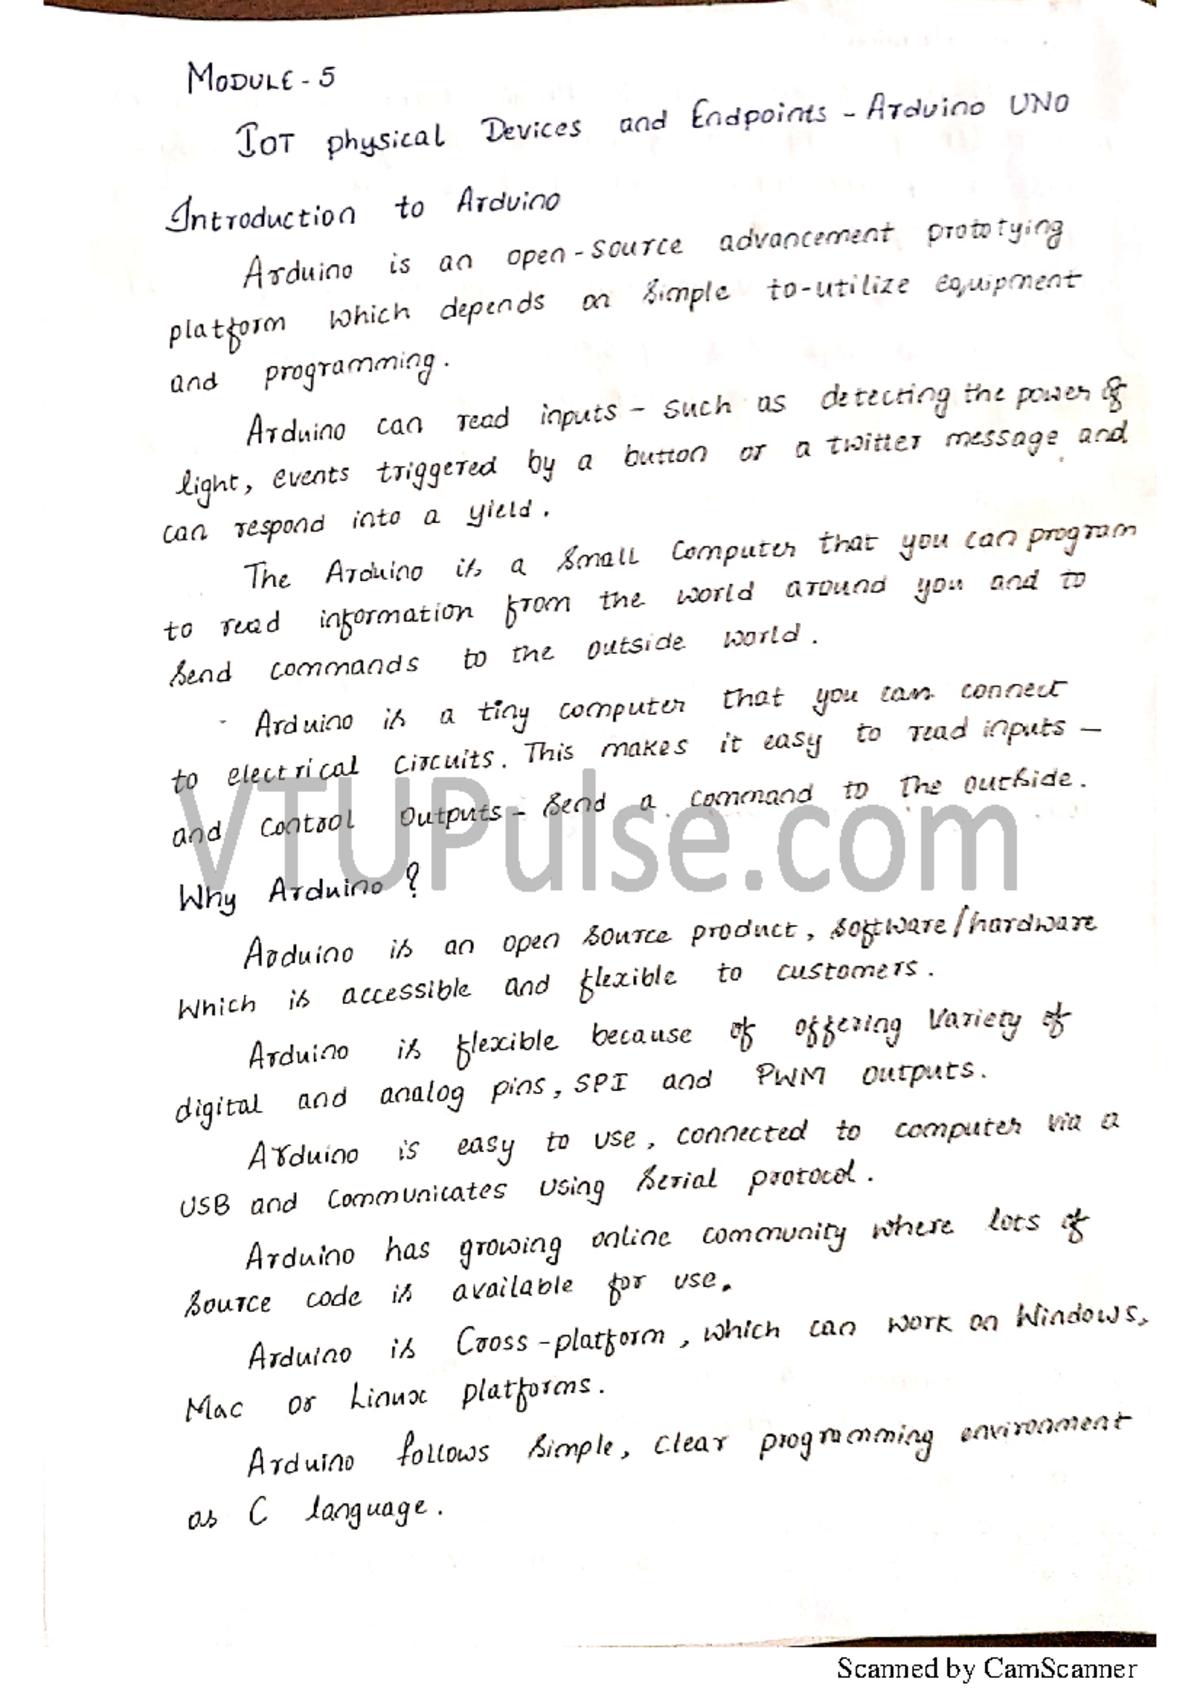 MODULE - 5
IOT physical Devices and Endpoints - Arduino UNO
Introduction to Arduino
Arduino is an open-source advancement prototying
platform which depends on simple to-utilize equipment
and programming.
Arduino can read inputs - such as detecting the power of
light, events triggered by a button or a twitter message and
can respond into a yield.
The Arduino is a small computer that you can program
to read information from the world around you and to
send commands to the outside world.
Arduino is a tiny computer that you can connect
to electrical circuits. This makes it easy to read inputs -
and control outputs - send a command to the outside.
VTUPulse.com
Why Arduino?
Arduino is an open source product, software/hardware
which is accessible and flexible to customers.
Arduino is flexible because of offering variety of
digital and analog pins, SPI and PWM outputs.
Arduino is easy to use, connected to computer via a
USB and communicates using serial protocol.
Arduino has growing online community where lots of
source code is available for use.
Arduino is Cross-platform, which can work on Windows,
Mac or Linux platforms.
Arduino follows simple, clear programming environment
as C language.
Scanned by CamScanner